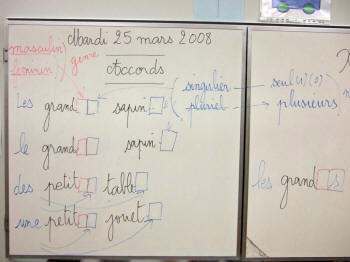 Mardi 25 mars 2008
masculin
féminin
genre
Accords
singulier
seul(e)(s)
pluriel
plusieurs
Les grand sapin
le grand sapin
des petit table
une petit jouet
les grand s